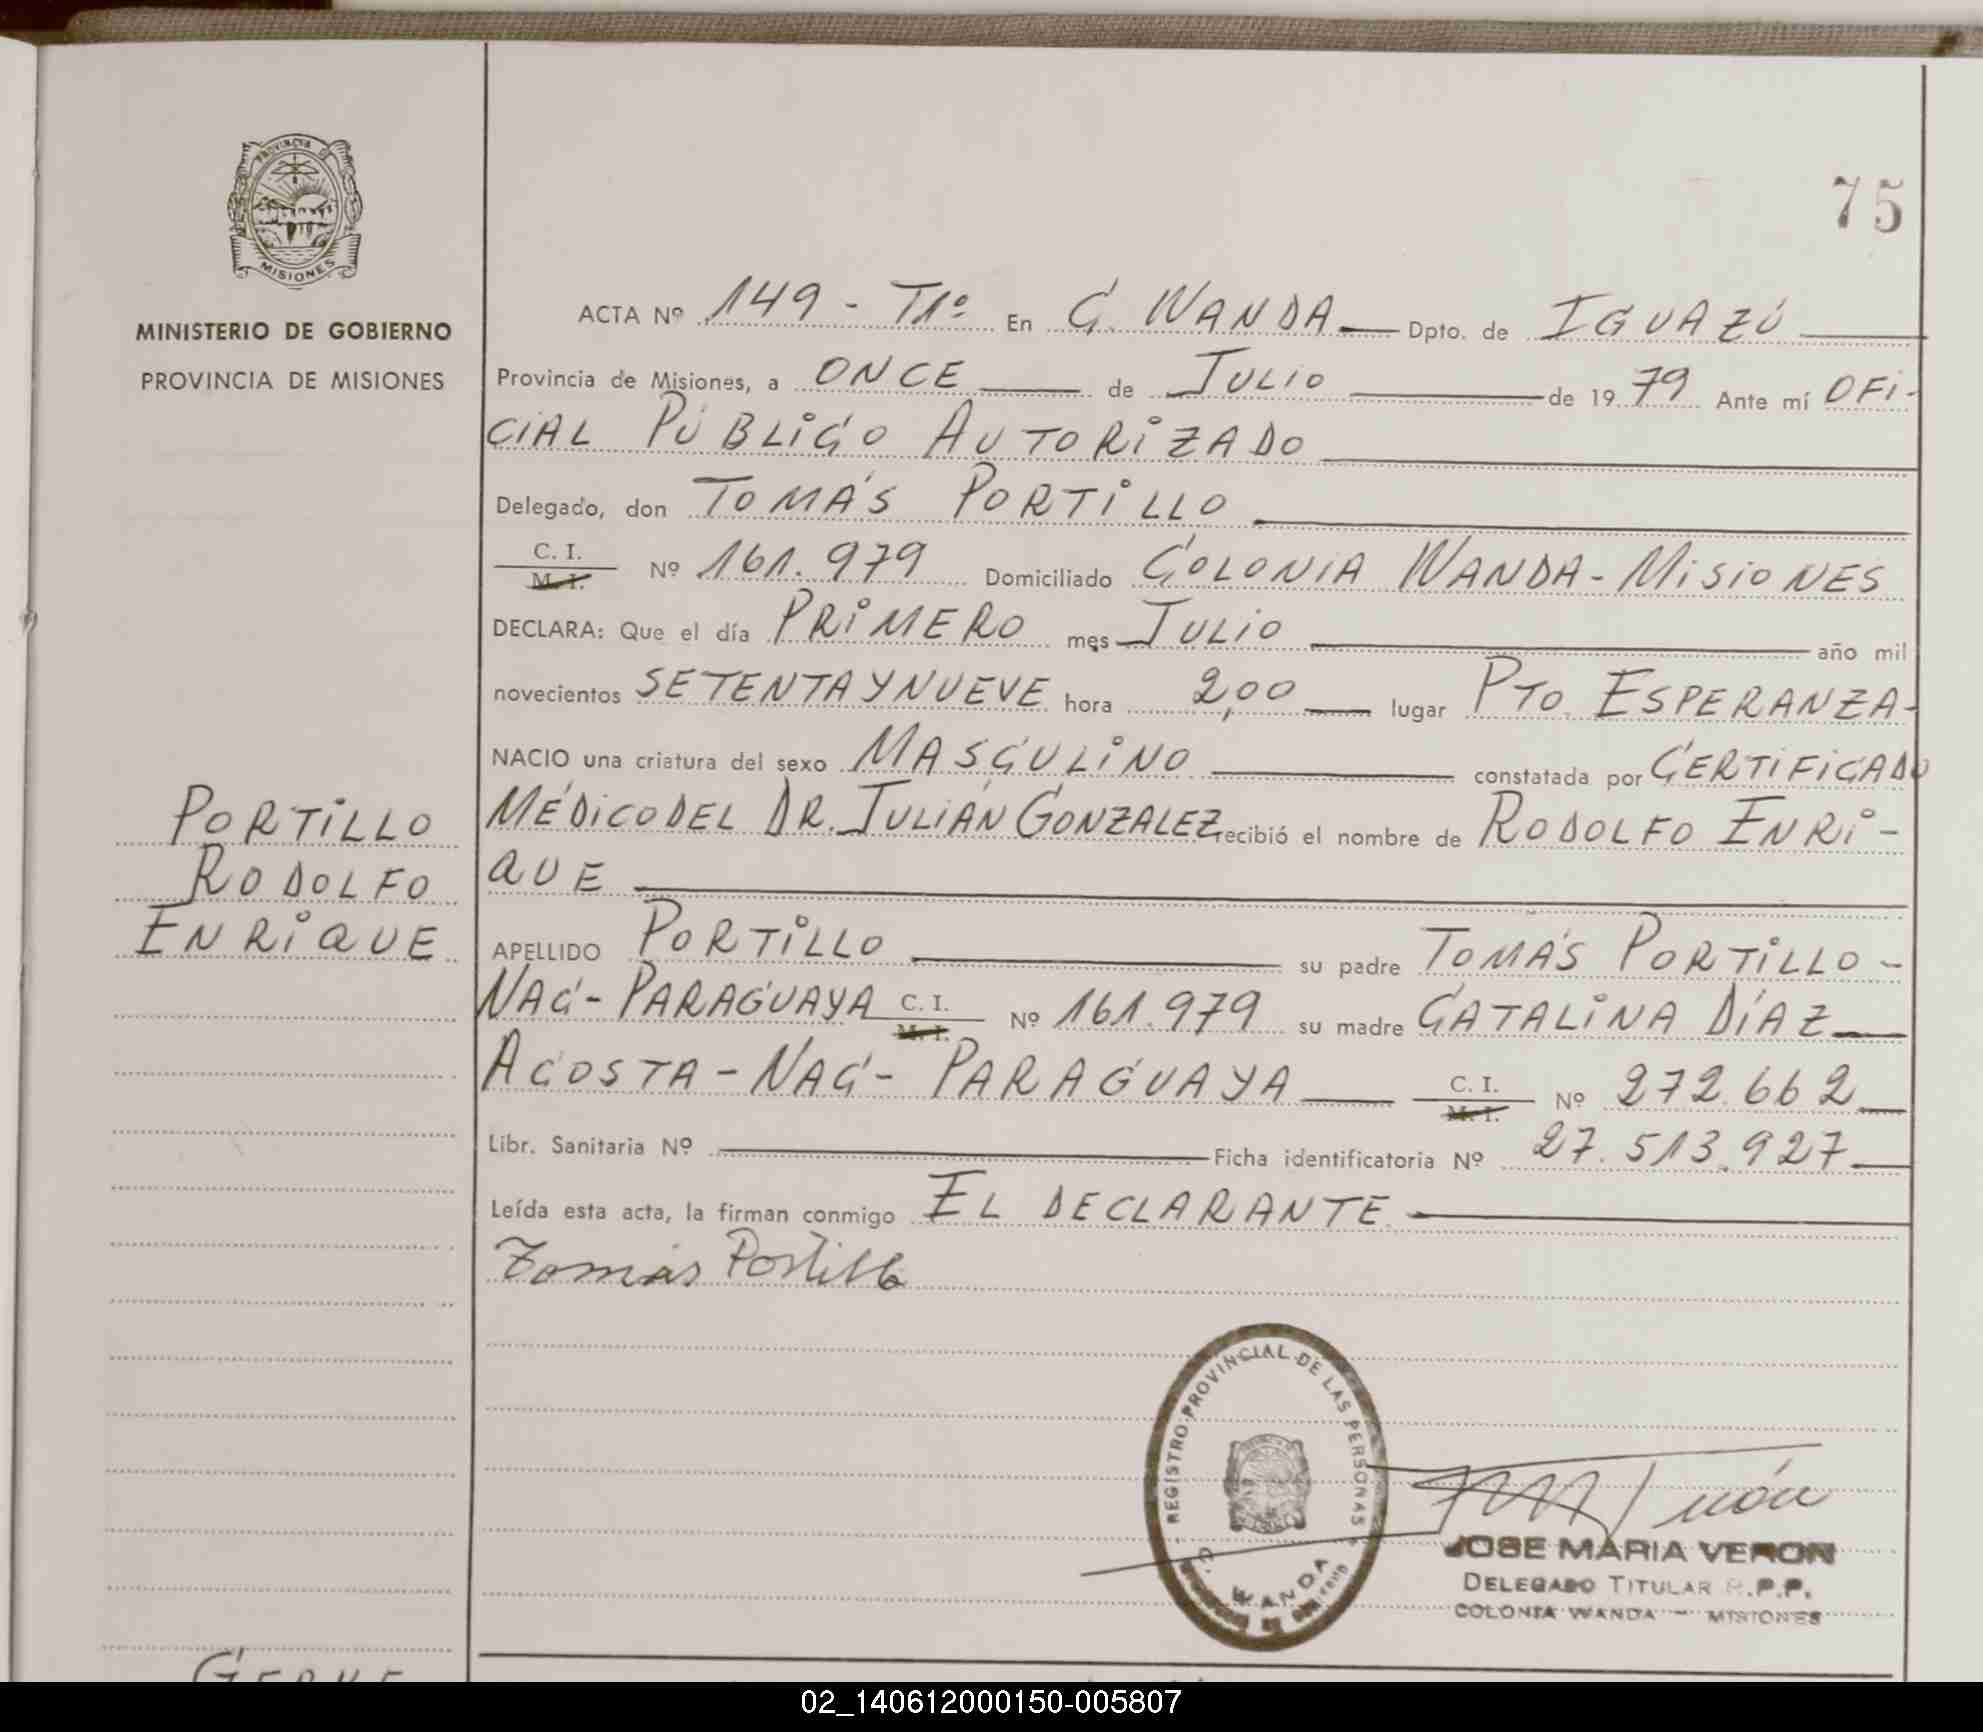 PROVINCIA DE
MISIONES
MINISTERIO DE GOBIERNO
PROVINCIA DE MISIONES
75
ACTA Nº 149 - T1º En C. WANDA Dpto. de IGUAZÚ
Provincia de Misiones, a ONCE de JULIO de 1979 Ante mí OFI-
CIAL PÚBLICO AUTORIZADO
Delegado, don TOMÁS PORTILLO
C. I.
M. I. Nº 161.979 Domiciliado COLONIA WANDA - MISIONES
DECLARA: Que el día PRIMERO mes JULIO año mil
novecientos SETENTA Y NUEVE hora 2,00 lugar PTO. ESPERANZA-
NACIO una criatura del sexo MASCULINO constatada por CERTIFICADO
MÉDICO DEL DR. JULIÁN GONZALEZ recibió el nombre de RODOLFO ENRI-
QUE
APELLIDO PORTILLO su padre TOMÁS PORTILLO -
NAC- PARAGUAYA C. I. M. I. Nº 161.979 su madre CATALINA DÍAZ
ACOSTA - NAC - PARAGUAYA C. I. M. I. Nº 272.662
Libr. Sanitaria Nº Ficha identificatoria Nº 27.513.927
Leída esta acta, la firman conmigo EL DECLARANTE
Tomás Portillo
PORTILLO
RODOLFO
ENRIQUE
REGISTRO PROVINCIAL DE LAS PERSONAS
WANDA
JOSE MARIA VERON
DELEGADO TITULAR R.P.P.
COLONIA WANDA - MISIONES
02_140612000150-005807